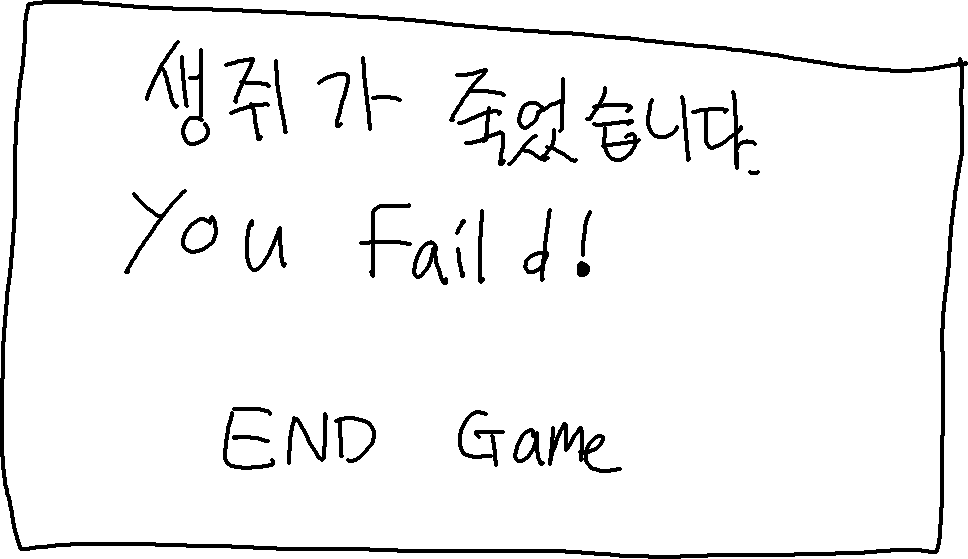 생쥐가 죽었습니다.
You Faild!
END Game